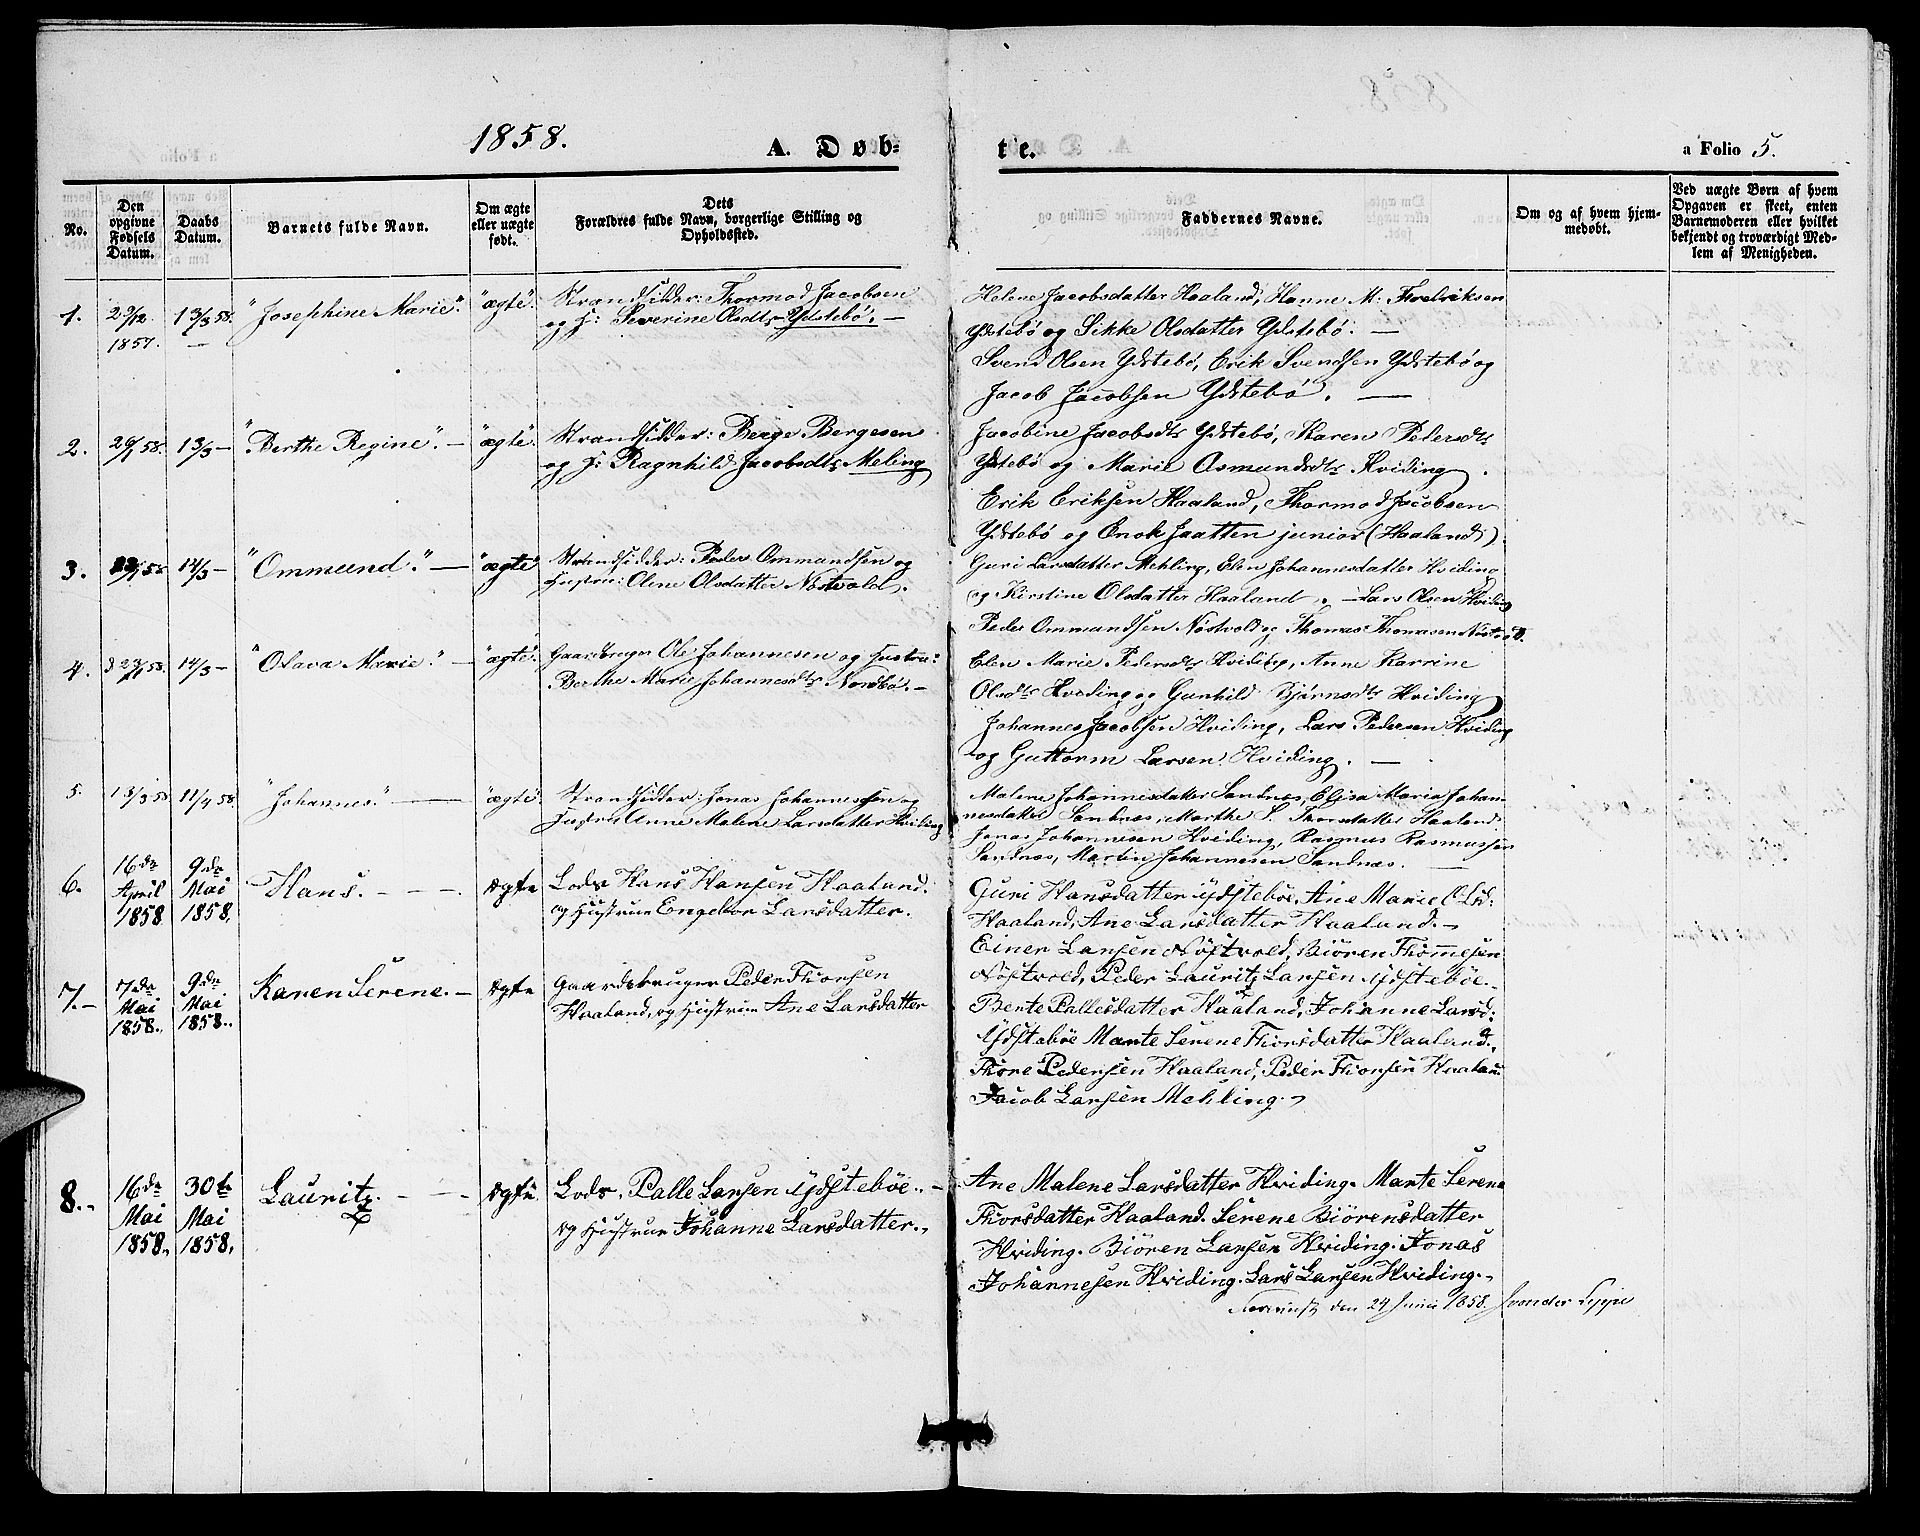 1858.
A. Døb-
te.
a Folio 5.
No.
Den opgivne Fødsels Datum.
Daabs Datum.
Barnets fulde Navn.
Om ægte eller uægte født.
Dets Forældres fulde Navn, borgerlige Stilling og Opholdssted.
Faddernes Navne.
Om og af hvem hjemmedøbt.
Ved uægte Børn af hvem Opgaven er skeet, enten Barnemoderen eller hvilket bekjendt og troværdigt Medlem af Menigheden.
1. 29/12 1857. 13/3 58. "Josephine Marie". "ægte".
Strandsidder: Thormod Jacobsen
og H: Severine Olsdtr Ydstebø. —
Helene Jacobsdatter Haaland, Hanne M. Fredriksen
Ydstebø og Sikke Olsdatter Ydstebø. —
Svend Olsen Ydstebø, Erik Svendsen Ydstebø og
Jacob Jacobsen Ydstebø. —
2. 58. 13/3 — "Berthe Regine". — "ægte".
Strandsidder: Berge Bergesen
og H: Ragnhild Jacobsdtr Meling
Jacobine Jacobsdtr Ydstebø, Karen Pedersdtr
Ydstebø og Marie Osmundsdtr Hviding.
Erik Eriksen Haaland, Thormod Jacobsen
Ydstebø og Enok Jaatten junior (Haaland).
3. 58. 14/3 — "Ommund". — "ægte"
Strandsidder: Peder Ommundsen og
Hustru: Olene Olsdatter Nøstvold.
Guri Larsdatter Mehling, Elen Johannesdatter Hviding
og Kirstine Olsdatter Haaland. — Lars Olsen Hviding
Peder Ommundsen Nøstvold og Thomas Thomasen
4. 58. 14/3 — "Olava Marie". — "ægte".
Gaardbruger Ole Johannesen og Hustru:
Berthe Marie Johannesdtr Nordbø. —
Elen Marie Pedersdtr Hviding, Anne Karrine
Olsdtr Hviding og Gunhild Bjørnsdtr Hviding
Johannes Jacobsen Hviding, Lars Pedersen Hviding
og Guttorm Larsen Hviding. —
5. 13/3 58 11/4 58. "Johannes". — "ægte".
Strandsidder: Jonas Johannessen og
Hustru, Anne Malene Larsdatter Hviding
Malene Johannesdatter Sandnæs, Elisa Maria Johan-
nesdatter Sandnæs, Marthe S. Thorsdatter Haaland.
Jonas Johannesen Hviding, Rasmus Rasmussen
Sandnæs, Martin Johannesen Sandnæs. —
6. 16de April 1858 9de Mai 1858. Hans. — ægte
Lods Hans Hansen Haaland.
og Hustrue Engebor Larsdatter.
Guri Hansdatter Ydstebøe, Ane Marie Olsd:
Haaland, Ane Larsdatter Haaland. —
Einer Larsen Nøstvold, Biøren Thommesen
Nøstvold, Peder Lauritz Larsen Ydstebøe.
7. — 7de Mai 1858. 9de Mai 1858. Karen Serene. — ægte
Gaardsbruger Peder Thorsen
Haaland, og Hustrue Ane Larsdatter
Bente Pallesdatter Haaland, Johanne Larsd:
Ydstebøe Marte Serene Thorsdatter Haaland.
Thore Pedersen Haaland, Peder Thorsen Haaland
Jacob Larsen Mehling. —
8. 16de Mai 1858. 30te Mai 1858. Lauritz. — ægte.
Lods, Palle Larsen Ydstebøe. —
og Hustrue Johanne Larsdatter.
Ane Malene Larsdatter Hviding. Marte Serene
Thorsdatter Haaland. Serene Biørensdatter
Hviding. Biøren Larsen Hviding. Jonas
Johannesen Hviding. Lars Larsen Hviding. —
den 24 Juni 1858.